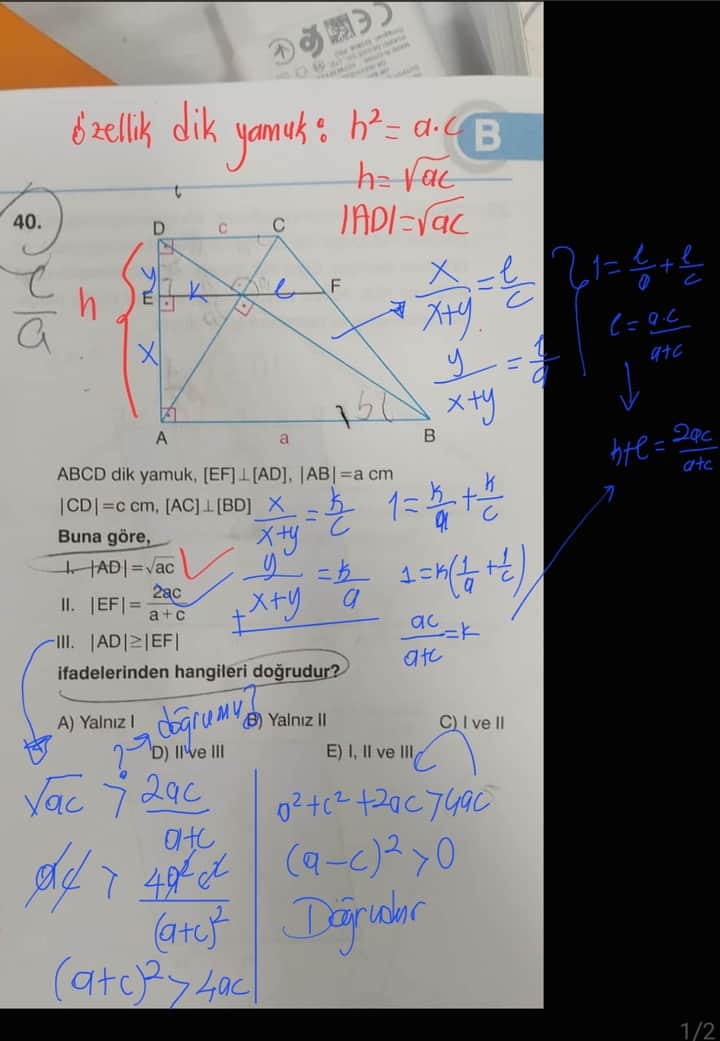 özellik dik yamuk: h² = a.c
B
h = √ac
|AD| = √ac
40.
D c C
h
y E k l F
x
A a B
x/(x+y) = l/c
y/(x+y) = l/a
1 = l/a + l/c
l = a.c/(a+c)
k+l = 2ac/(a+c)
ABCD dik yamuk, [EF]⊥[AD], |AB|=a cm
|CD|=c cm, [AC]⊥[BD]
Buna göre,
I. |AD|=√ac
II. |EF|= 2ac/(a+c)
III. |AD|≥|EF|
ifadelerinden hangileri doğrudur?
x/(x+y) = k/c
y/(x+y) = k/a
1 = k/a + k/c
1 = k(1/a + 1/c)
ac/(a+c) = k
A) Yalnız I B) Yalnız II C) I ve II
D) II ve III E) I, II ve III
? → doğrumu?
√ac > 2ac/(a+c)
ac > 4a²c²/(a+c)²
(a+c)² > 4ac
a²+c²+2ac > 4ac
(a-c)² > 0
Doğrudur
1/2